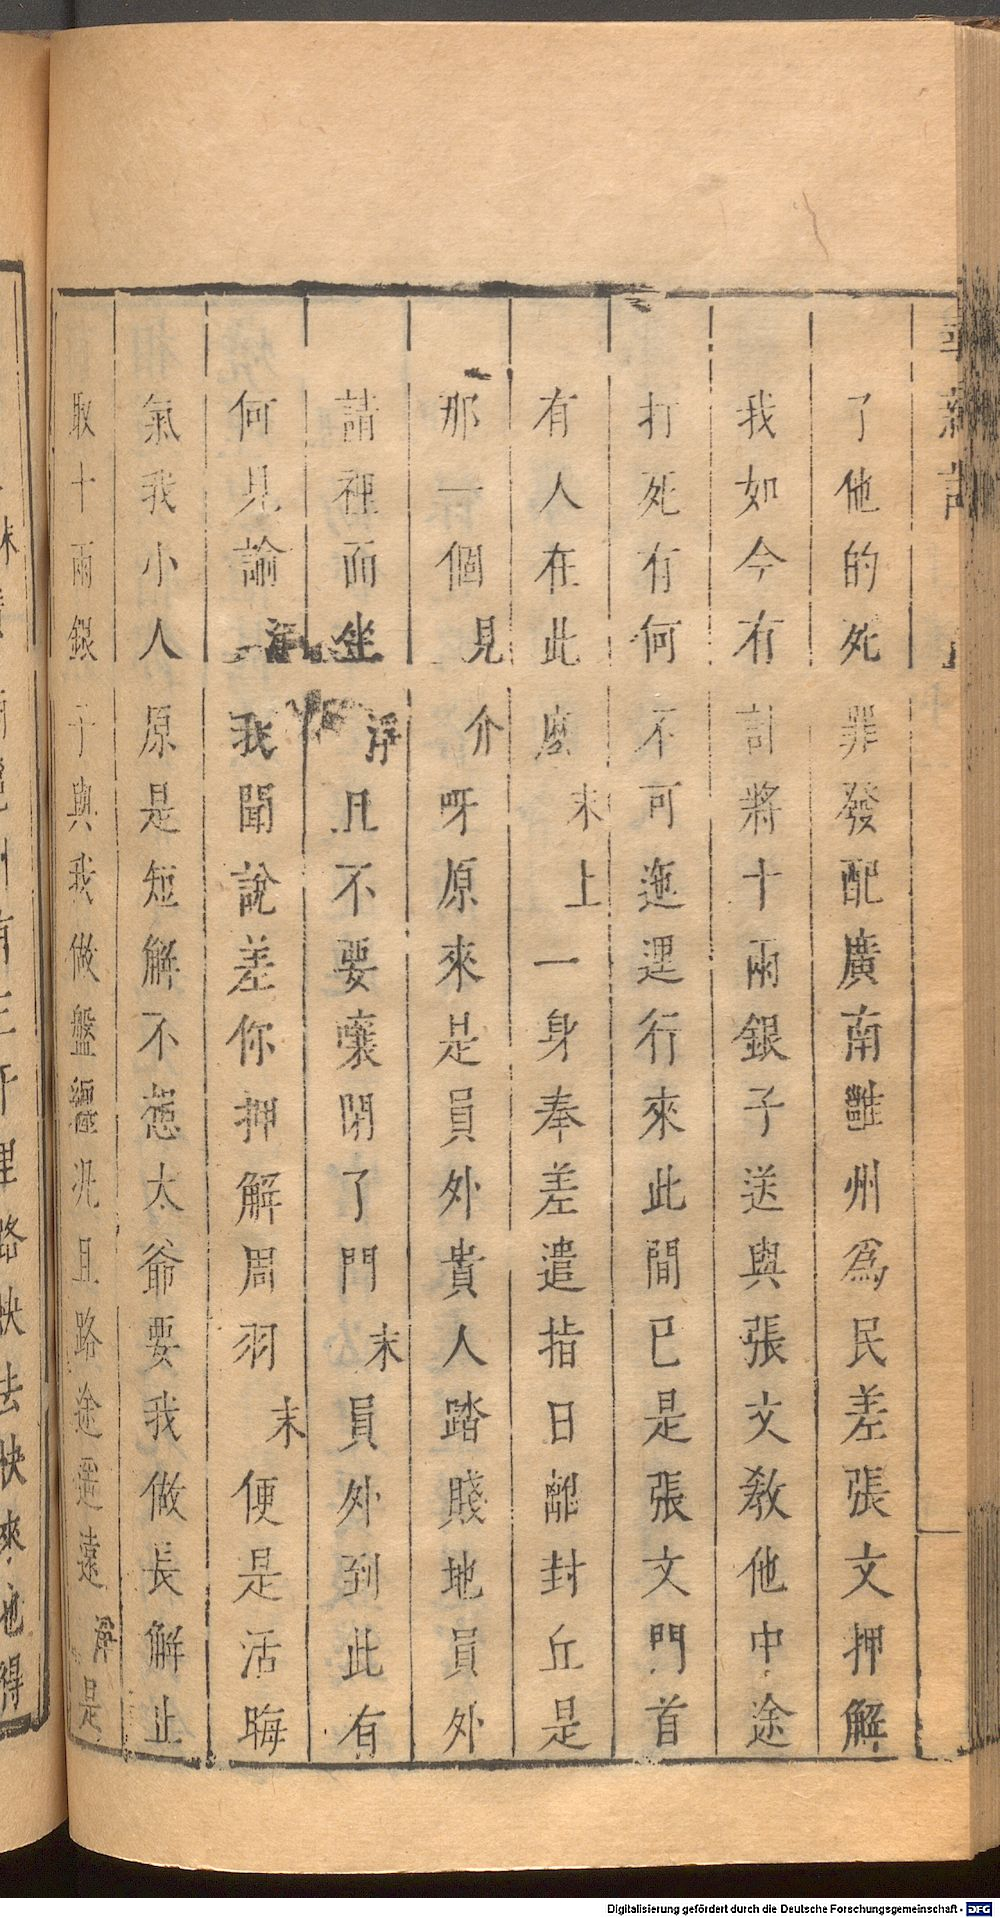 了他的死罪發配廣南雝州爲民差張文押解
我如今有計將十兩銀子送與張文教他中途
打死有何不可迤逻行來此間已是張文門首
有人在此麽末上一身奉差遣指日離封丘是
那一個見介呀原來是員外貴人踏賤地員外
請裡面坐淨且不要嚷閉了門末員外到此有
何見諭淨我聞說差你押解周羽末便是活晦
氣我小人原是短解不想太爺要我做長解止
取十兩銀子與我做盤纏兆且路途遥遠淨是
Digitalisierung gefördert durch die Deutsche Forschungsgemeinschaft - DFG